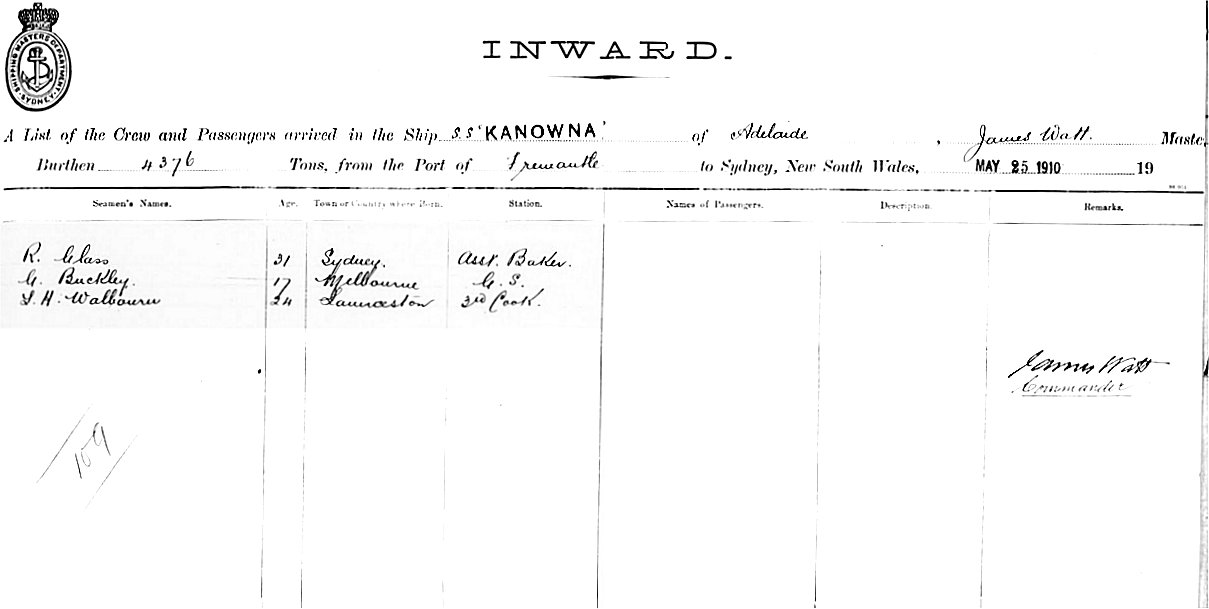 SHIPPING MASTERS DEPARTMENT. SYDNEY.
INWARD.
A List of the Crew and Passengers arrived in the Ship S.S "KANOWNA" of Adelaide, James Watt. Master
Burthen 4376 Tons, from the Port of Fremantle to Sydney, New South Wales, MAY 25 1910 19
Seamen's Names. Age. Town or Country where Born. Station. Names of Passengers. Description. Remarks.
R. Glass 31 Sydney. Asst. Baker.
G. Buckley. 17 Melbourne G. S.
H. Walbourn 24 Launceston 3rd Cook.
James Watt
Commander
109